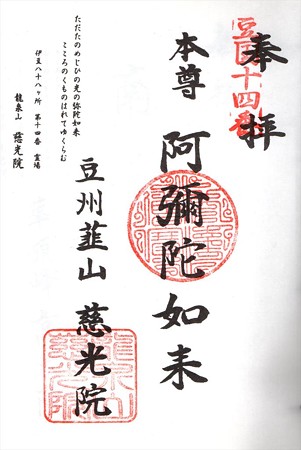 奉拝
豆国十四番
本尊 阿彌陀如来
豆州韮山 慈光院
ただたのめじひの光の弥陀如来
こころのくものはれてゆくらむ
伊豆八十八ヶ所 第十四番 霊場
龍泉山 慈光院